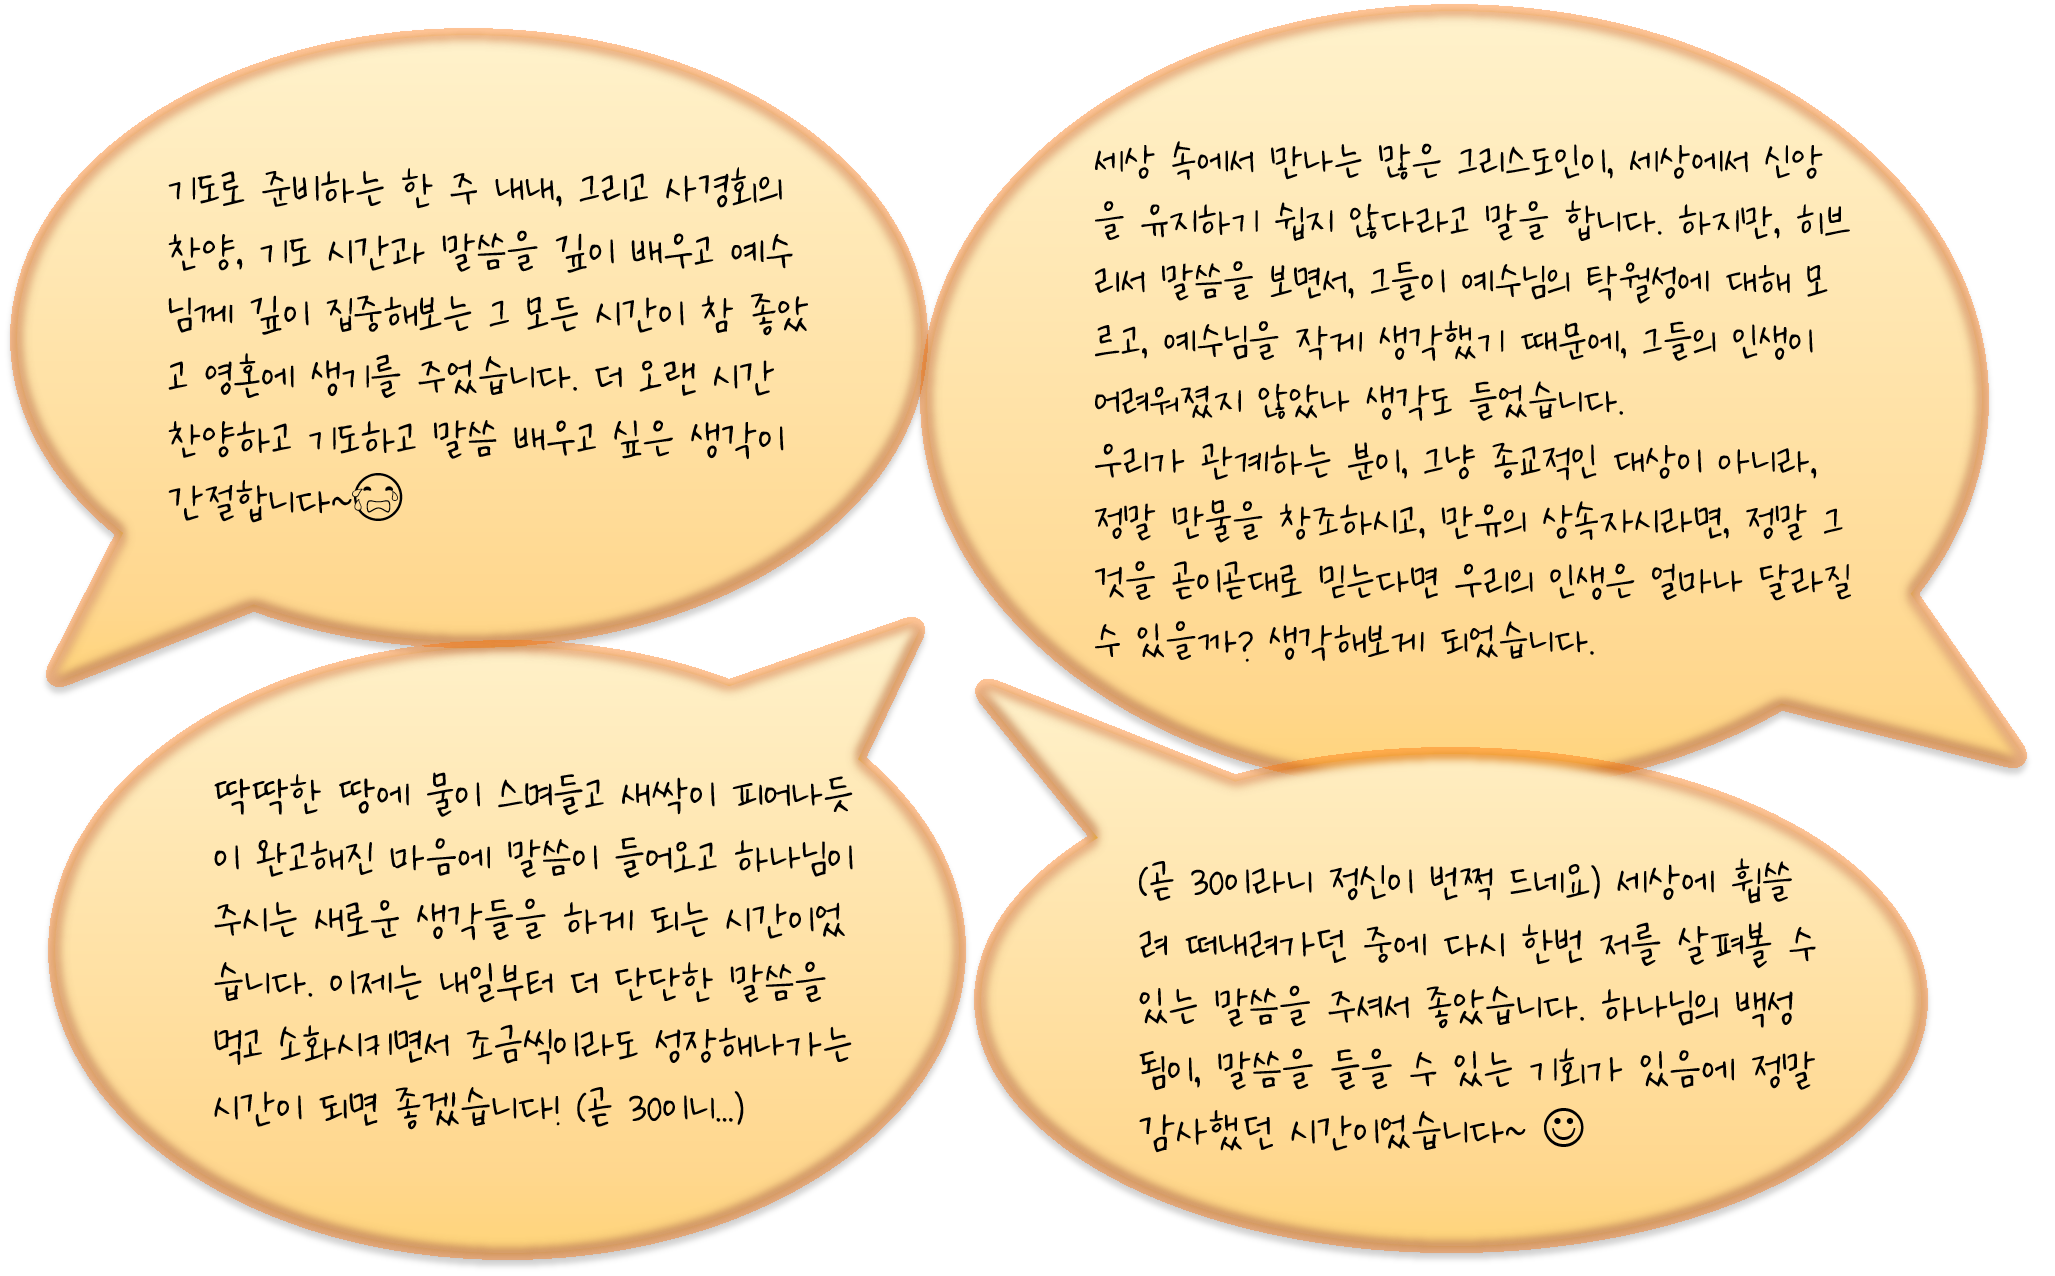 기도로 준비하는 한 주 내내, 그리고 사경회의
찬양, 기도 시간과 말씀을 깊이 배우고 예수
님께 깊이 집중해보는 그 모든 시간이 참 좋았
고 영혼에 생기를 주었습니다. 더 오랜 시간
찬양하고 기도하고 말씀 배우고 싶은 생각이
간절합니다~😭
세상 속에서 만나는 많은 그리스도인이, 세상에서 신앙
을 유지하기 쉽지 않다라고 말을 합니다. 하지만, 히브
리서 말씀을 보면서, 그들이 예수님의 탁월성에 대해 모
르고, 예수님을 작게 생각했기 때문에, 그들의 인생이
어려워졌지 않았나 생각도 들었습니다.
우리가 관계하는 분이, 그냥 종교적인 대상이 아니라,
정말 만물을 창조하시고, 만유의 상속자시라면, 정말 그
것을 곧이곧대로 믿는다면 우리의 인생은 얼마나 달라질
수 있을까? 생각해보게 되었습니다.
딱딱한 땅에 물이 스며들고 새싹이 피어나듯
이 완고해진 마음에 말씀이 들어오고 하나님이
주시는 새로운 생각들을 하게 되는 시간이었
습니다. 이제는 내일부터 더 단단한 말씀을
먹고 소화시키면서 조금씩이라도 성장해나가는
시간이 되면 좋겠습니다! (곧 30이니...)
(곧 30이라니 정신이 번쩍 드네요) 세상에 휩쓸
려 떠내려가던 중에 다시 한번 저를 살펴볼 수
있는 말씀을 주셔서 좋았습니다. 하나님의 백성
됨이, 말씀을 들을 수 있는 기회가 있음에 정말
감사했던 시간이었습니다~ ☺